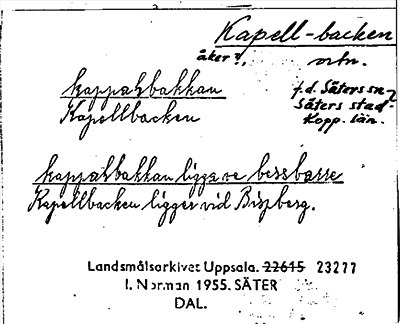 Kapell-backen
åker?, ortn.
kappälsbakkan
Kapellbacken
f.d. Säters sn
Säters stad
Kopp. län.
kappälsbakkan ligge ve bessbärre
Kapellbacken ligger vid Bispberg.
Landsmålsarkivet Uppsala. 22615 23277
I. Norman 1955. SÄTER
DAL.